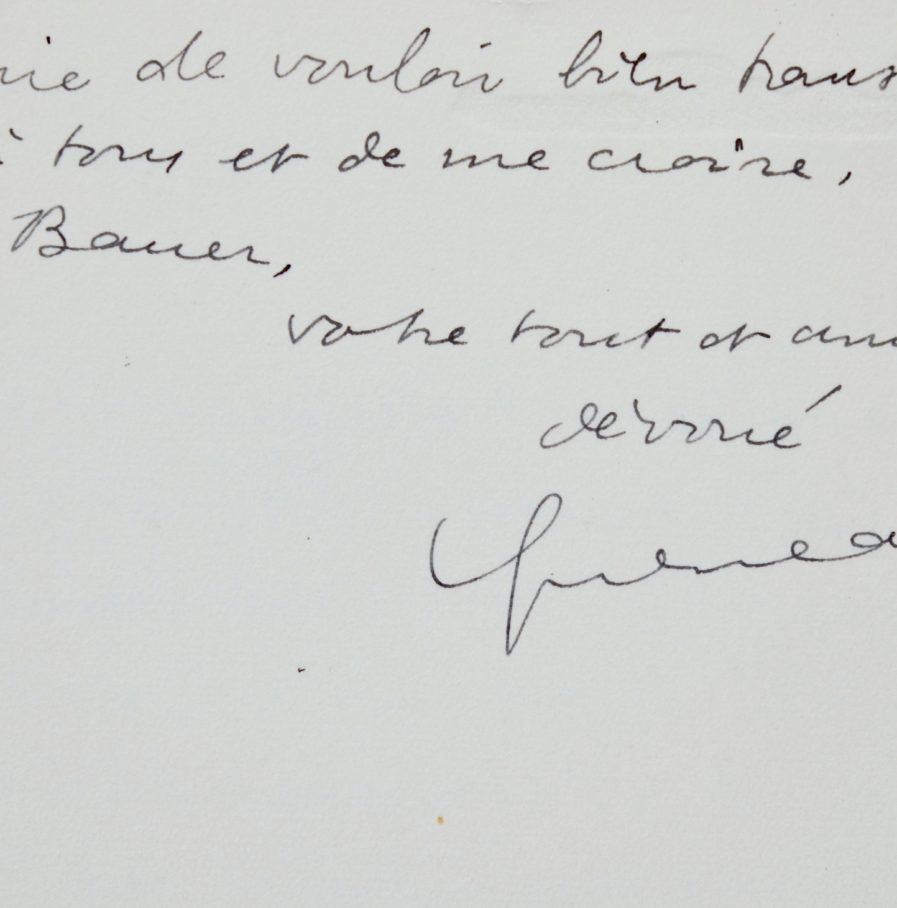 rie de vouloir bien trans
à tous et de me croire,
Bauer,
votre tout et am
dévoué
Quenea